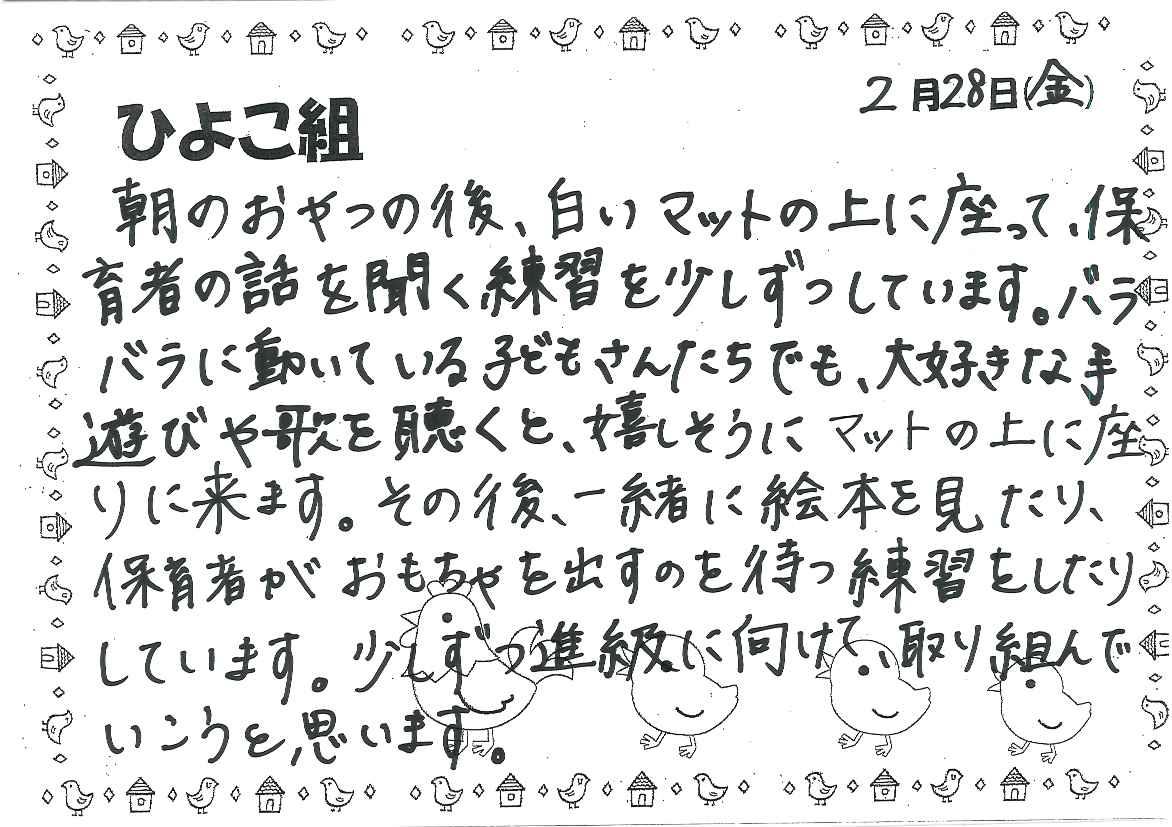 2月28日(金)
ひよこ組
朝のおやつの後、白いマットの上に座って、保
育者の話を聞く練習を少しずつしています。バラ
バラに動いている子どもさんたちでも、大好きな手
遊びや歌を聴くと、嬉しそうにマットの上に座
りに来ます。その後、一緒に絵本を見たり、
保育者がおもちゃを出すのを待つ練習をしたり
しています。少しずつ進級に向けて、取り組んで
いこうと思います。